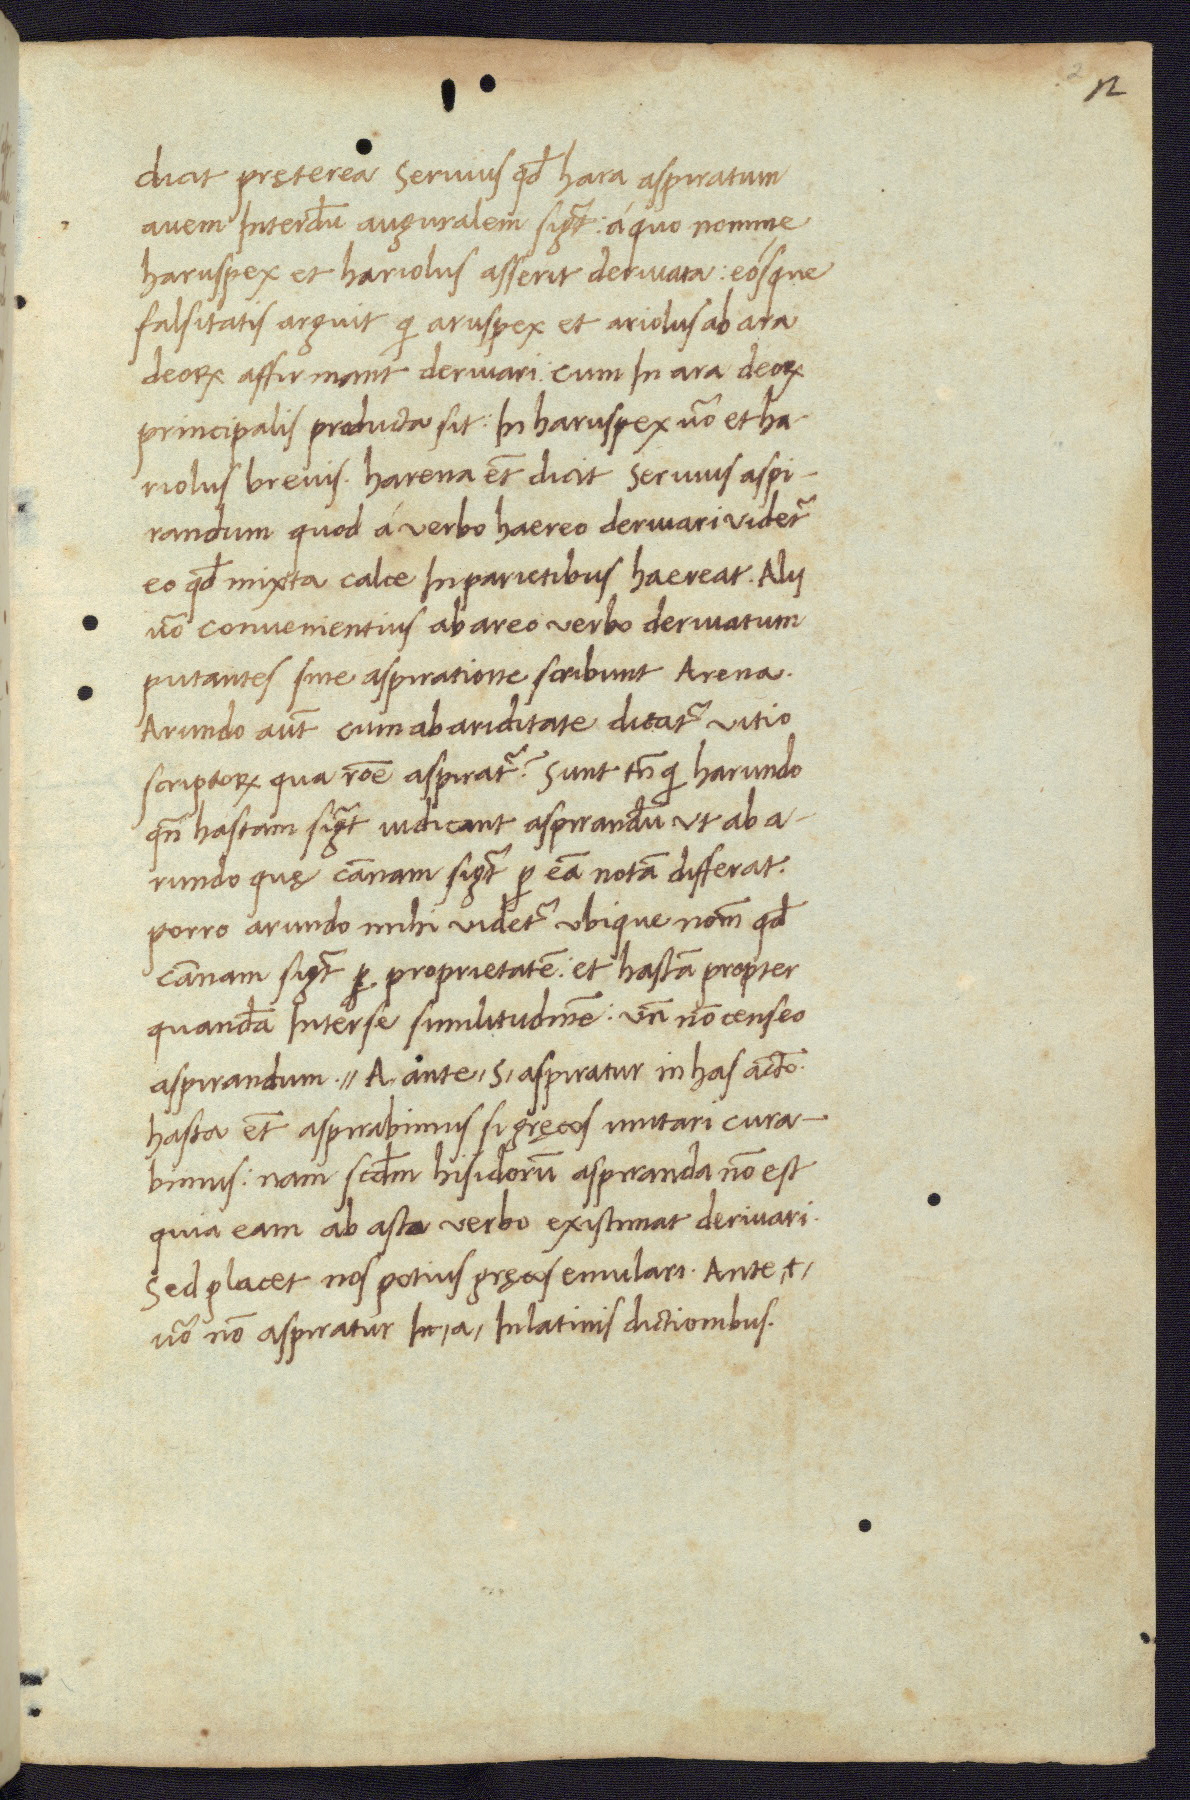 2 12
dicit pręterea Seruius qđ hara aspiratum
auem Interdū auguralem sigt̃: á quo nomine
haruspex et hariolus asserit deriuata: eósque
falsitatis arguit q̇ aruspex et ariolus ab ara
deoꝝ affirmant deriuari: cum In ara deoꝝ
principalis producta sit: In haruspex uo᷃ et ha-
riolus breuis. harena et̄ dicit Seruius aspi-
randum quod á verbo haereo deriuari videt᷃
eo qđ mixta calce In parietibus haereat. Alij
uo᷃ conuenientius ab areo verbo deriuatum
putantes sine aspiratione scribunt Arena.
Arundo aut̄ cum ab ariditate dicat᷃ vitio
scriptoꝝ qua roē aspirat᷃? Sunt tn̄ q̇ harundo
qn̄ hastam sigt̃ iudicant aspirandū vt ab a-
rundo quę cānam sigt̃ ꝑ eā notā differat.
porro arundo mihi videt᷃ vbique nom̄ qđ
cānam sigt̃ ꝑ proprietatē: et hastā propter
quandā Inter se similitudinē: vn̄ nō censeo
aspirandum .// A, ante, S, aspiratur in has actō.
hasta et̄ aspirabimus si gręcos imitari cura-
bimus: nam scđm hisidorū aspiranda nō est
quia eam ab asto verbo existimat deriuari.
Sed placet nos potius gręcos emulari. Ante, t,
uo᷃ nō aspiratur In, a, In latinis dictionibus.